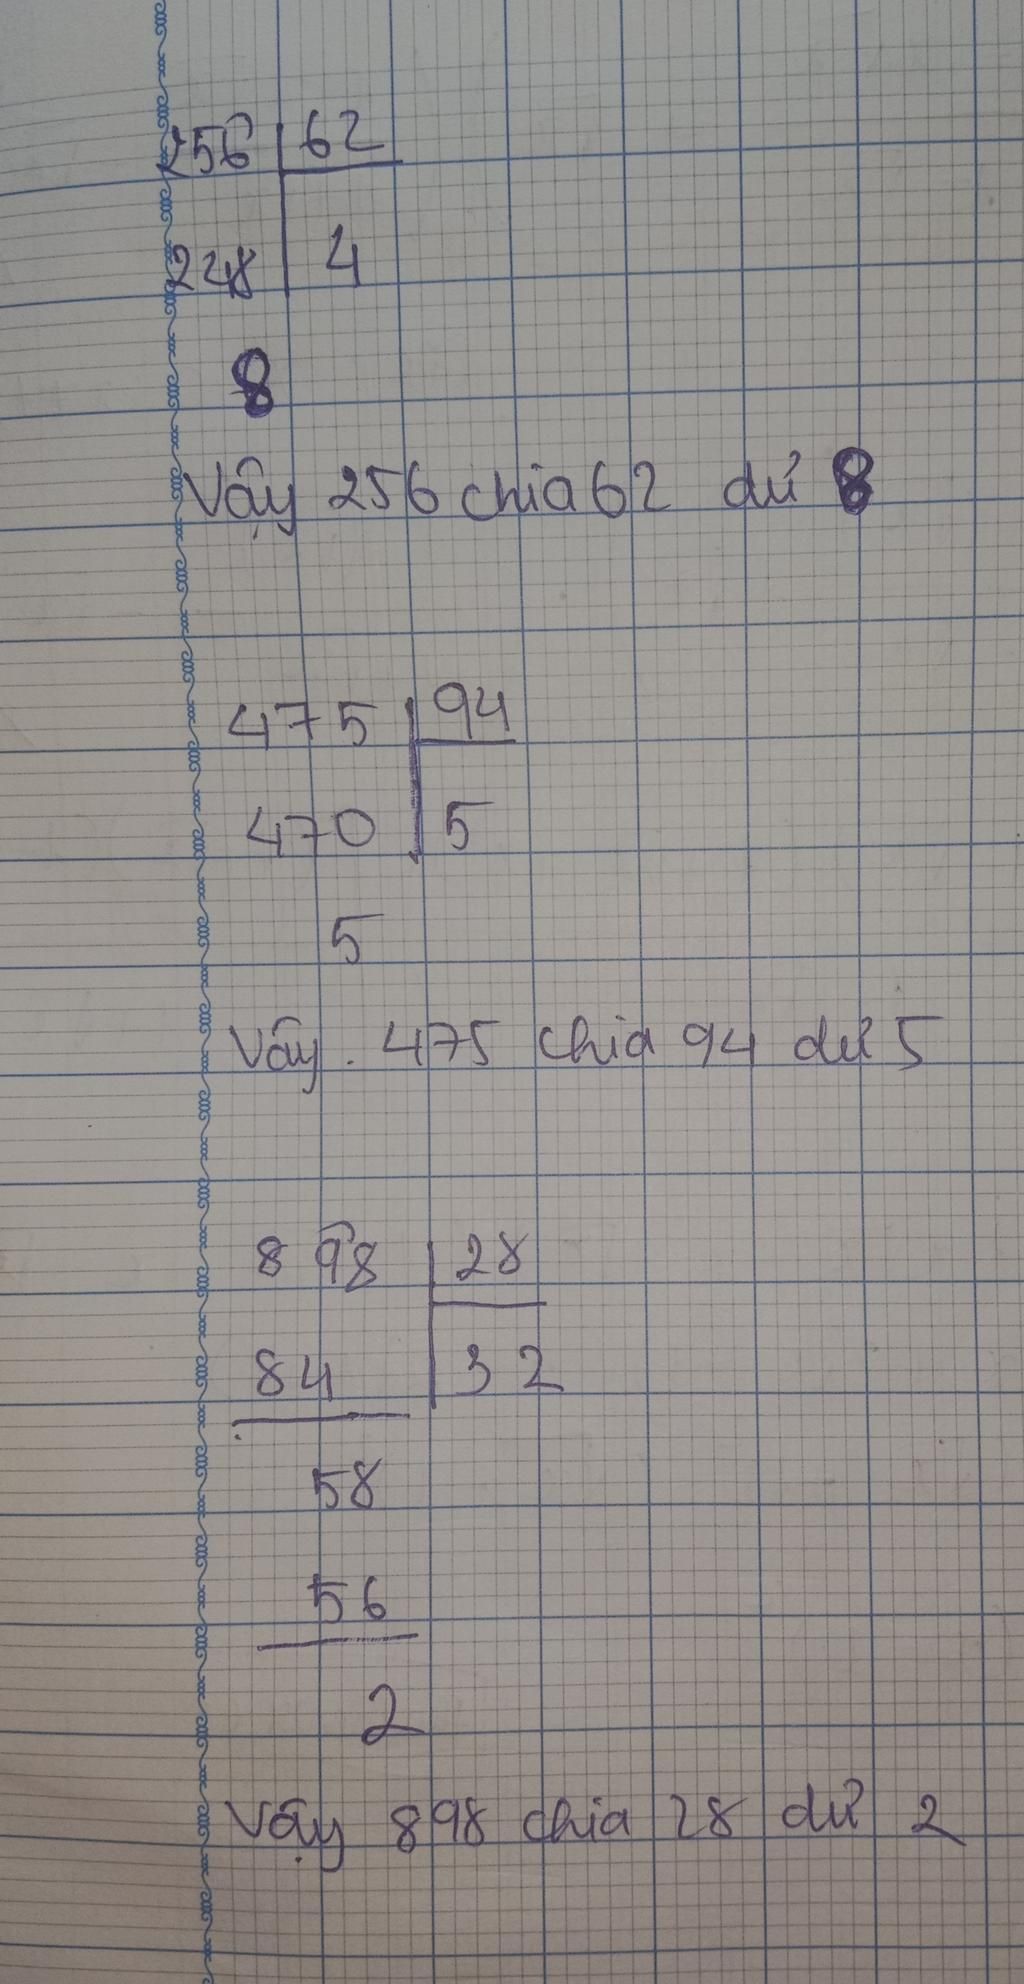 256 62
248 4
8
Vậy 256 chia 62 dư 8
475 94
470 5
5
Vậy . 475 chia 94 dư 5
898 28
84 32
58
56
2
Vậy 898 chia 28 dư 2